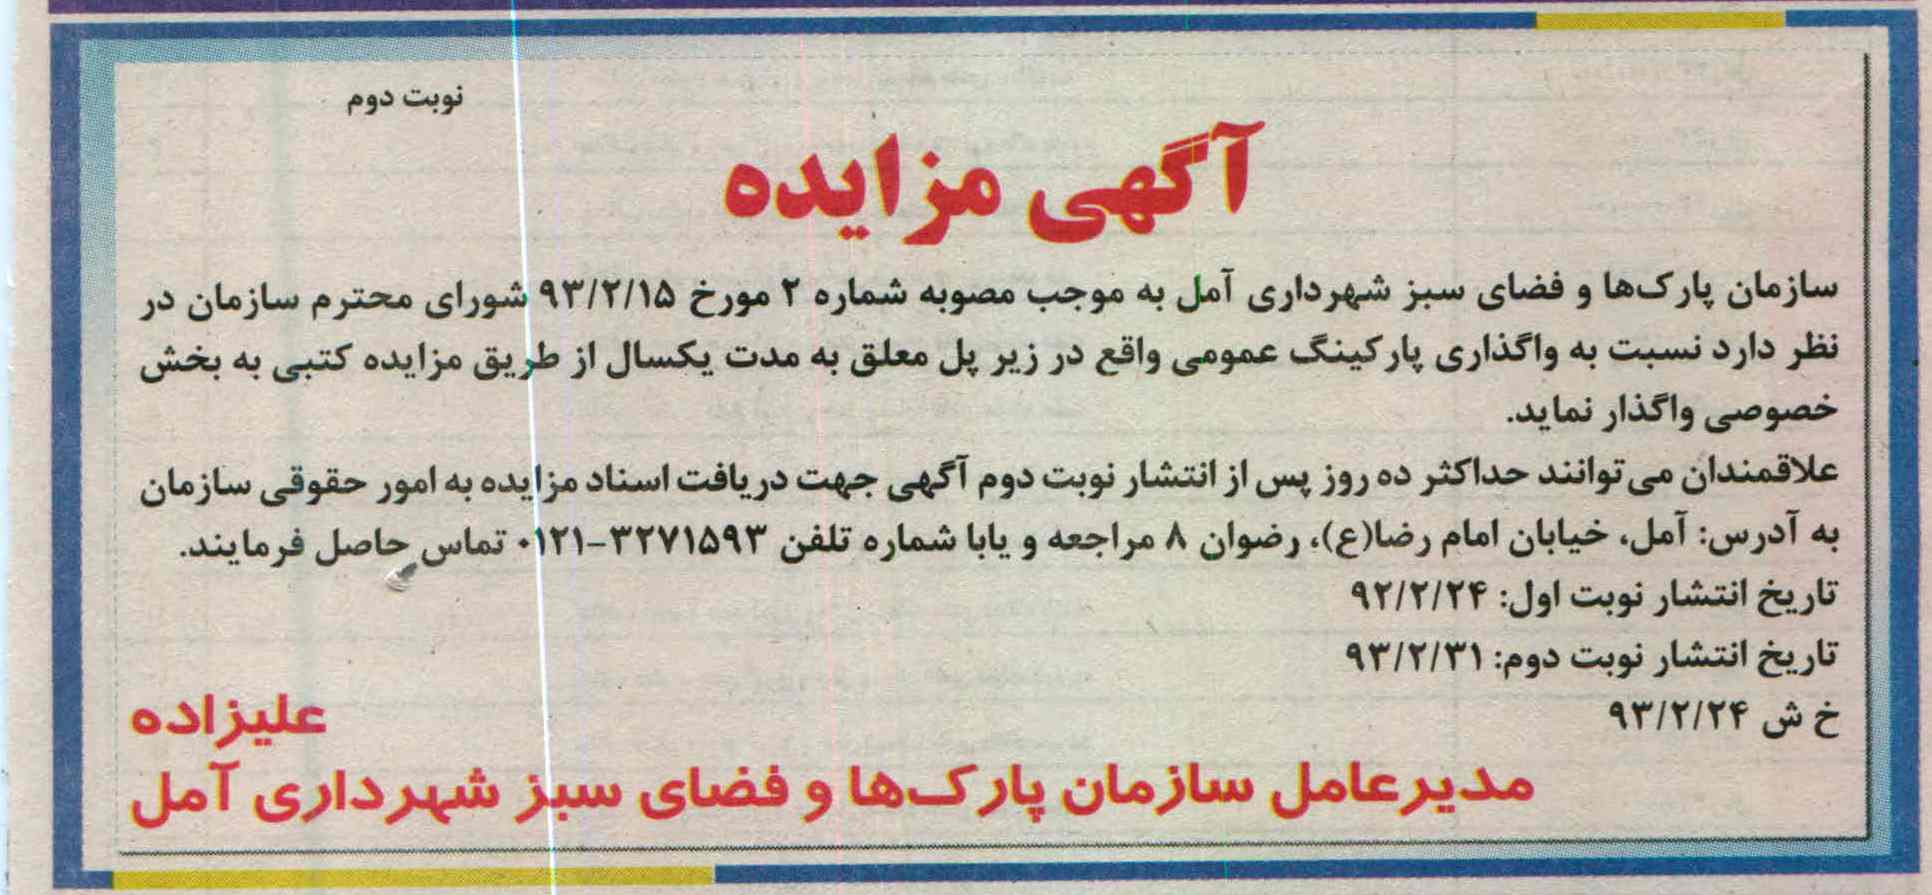 نوبت دوم
آگهی مزایده
سازمان پارک‌ها و فضای سبز شهرداری آمل به موجب مصوبه شماره ۲ مورخ ۹۳/۲/۱۵ شورای محترم سازمان در
نظر دارد نسبت به واگذاری پارکینگ عمومی واقع در زیر پل معلق به مدت یکسال از طریق مزایده کتبی به بخش
خصوصی واگذار نماید.
علاقمندان می‌توانند حداکثر ده روز پس از انتشار نوبت دوم آگهی جهت دریافت اسناد مزایده به امور حقوقی سازمان
به آدرس: آمل، خیابان امام رضا(ع)، رضوان ۸ مراجعه و یابا شماره تلفن ۳۲۷۱۵۹۳-۰۱۲۱ تماس حاصل فرمایند.
تاریخ انتشار نوبت اول: ۹۲/۲/۲۴
تاریخ انتشار نوبت دوم: ۹۳/۲/۳۱
خ ش ۹۳/۲/۲۴
علیزاده
مدیرعامل سازمان پارک‌ها و فضای سبز شهرداری آمل